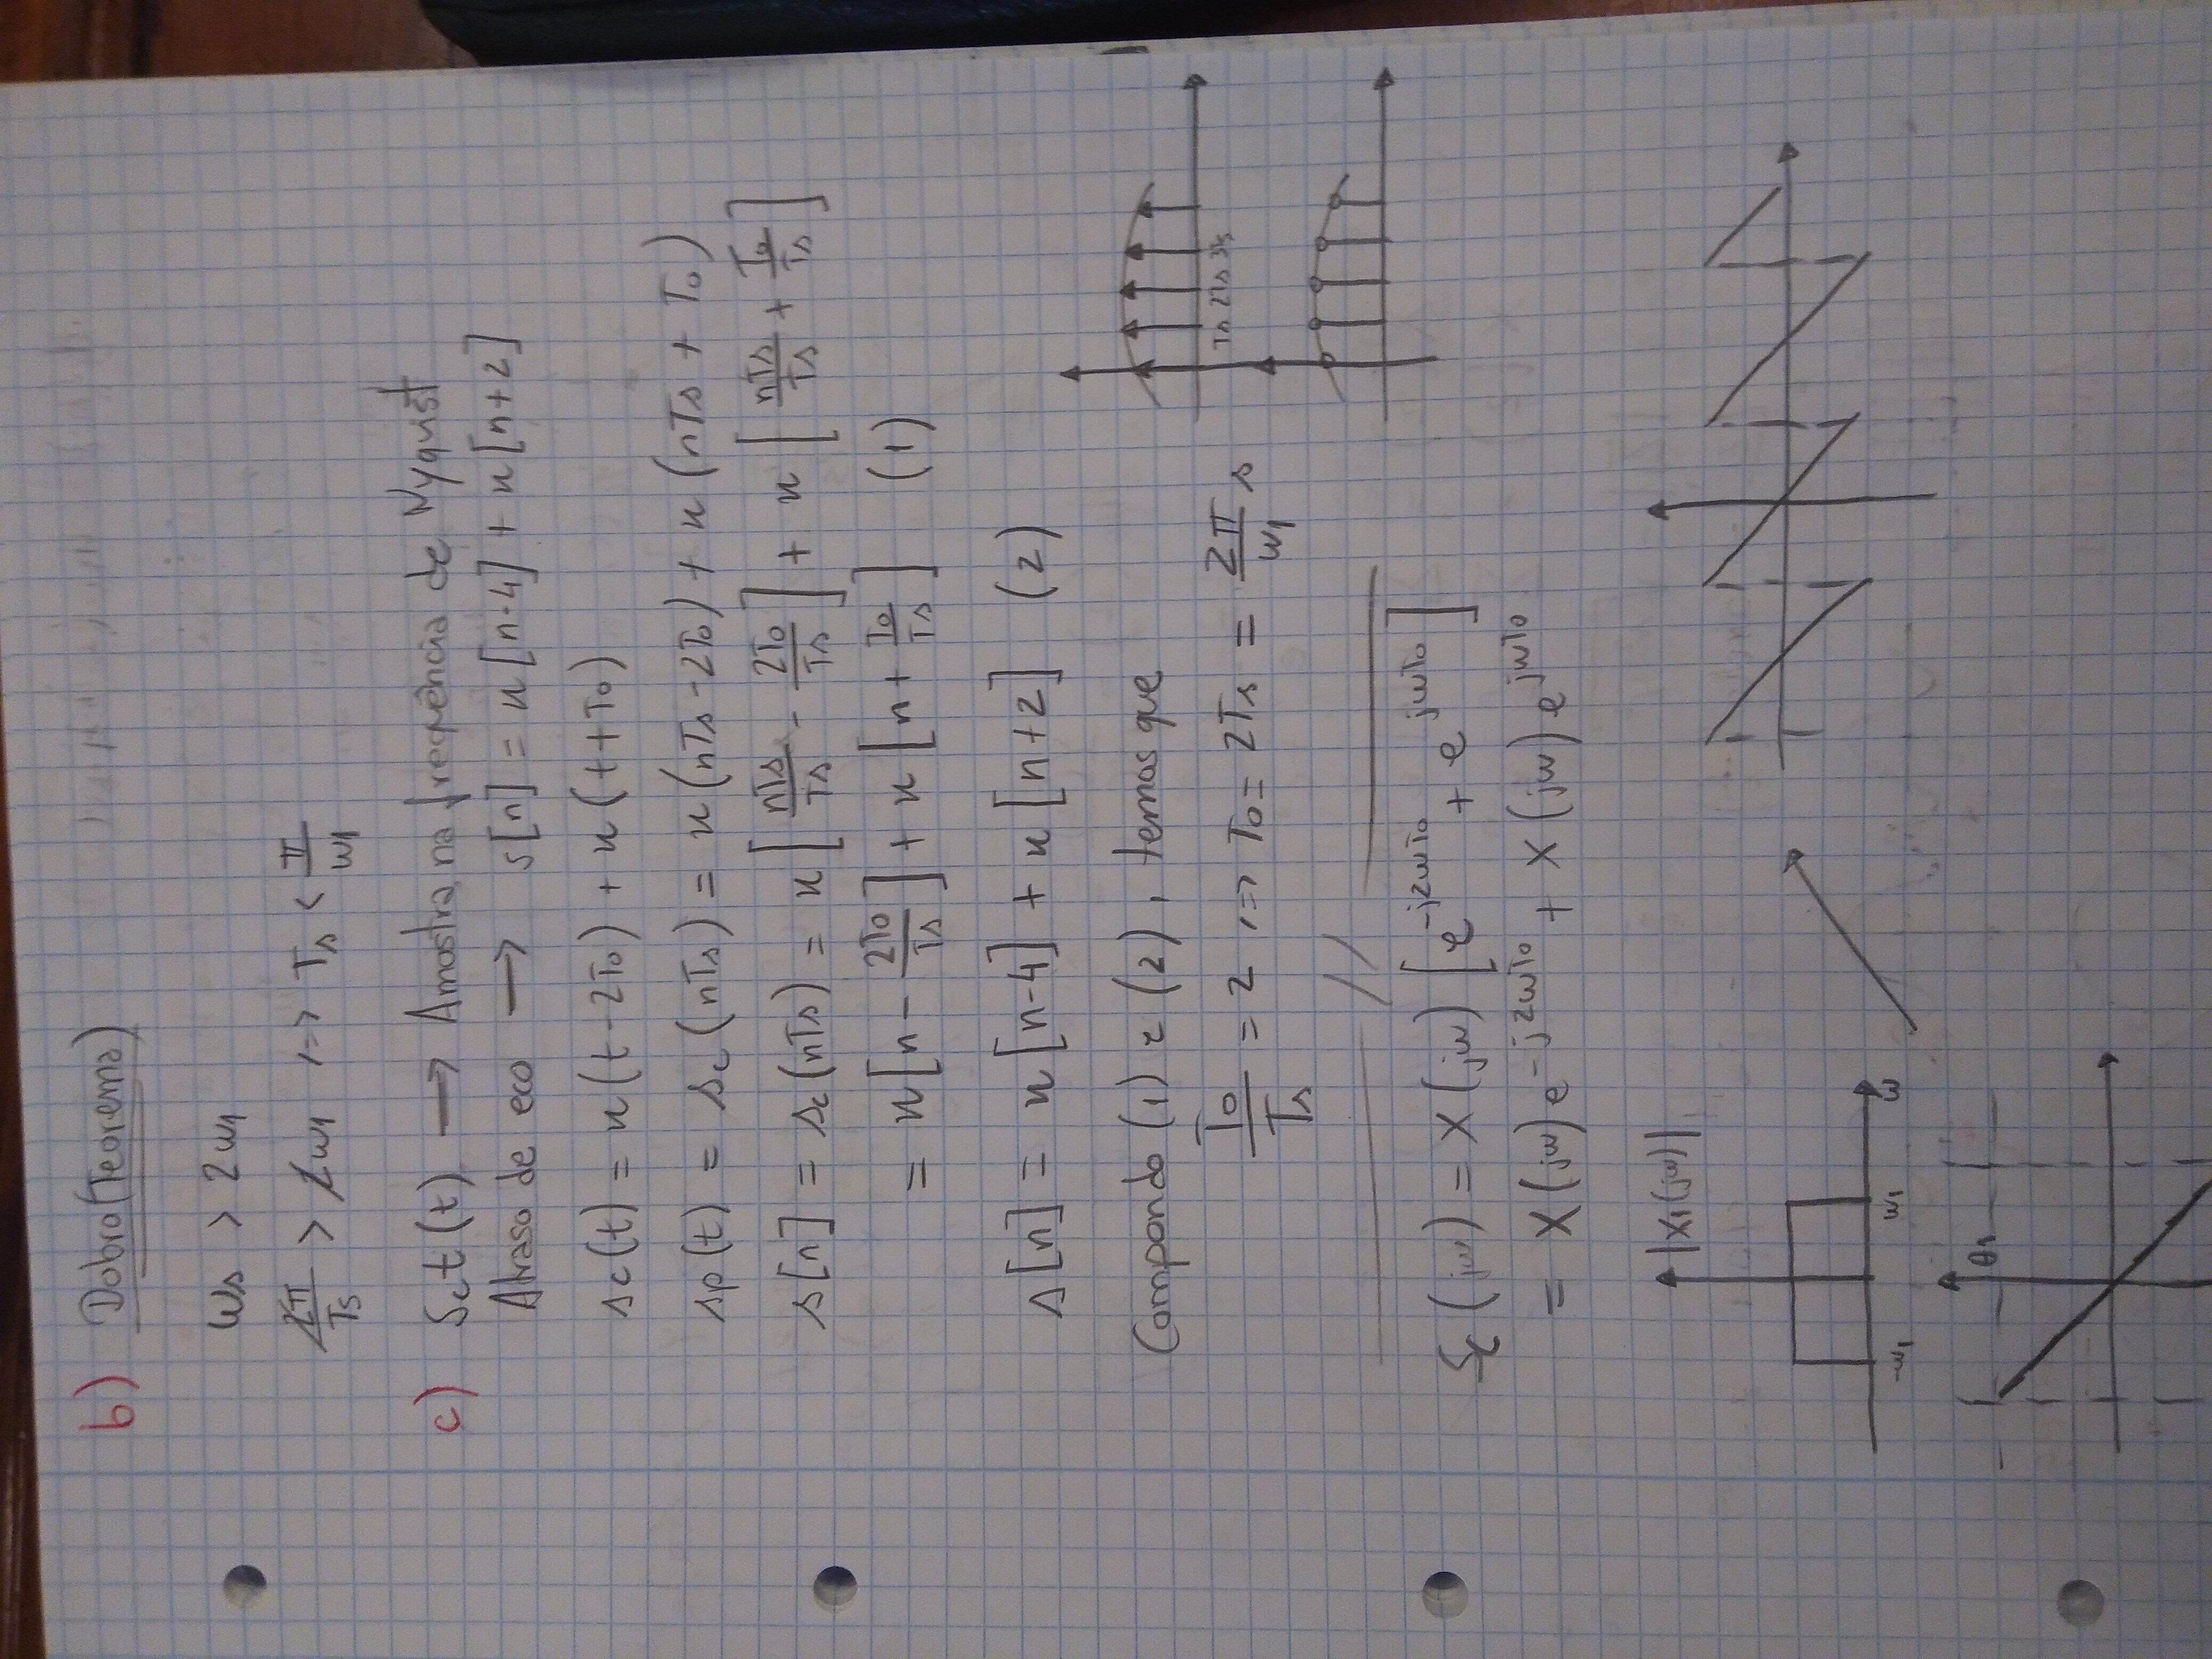 b) Dobro (Teorema)
ωs > 2ω1
2π/Ts > 2ω1 <=> Ts < π/ω1
c) Sct(t) → Amostra na frequência de Nyquist
Atraso de eco → s[n] = x[n-4] + x[n+2]
sc(t) = x(t-2To) + x(t+To)
sp(t) = sc(nTs) = x(nTs-2To) + x(nTs + To)
s[n] = sc(nTs) = x[nTs/Ts - 2To/Ts] + x[nTs/Ts + To/Ts]
= x[n - 2To/Ts] + x[n + To/Ts] (1)
s[n] = x[n-4] + x[n+2] (2)
Compondo (1) e (2), temos que
To/Ts = 2 <=> To = 2Ts = 2π/ω1 s
Ts 2Ts 3Ts
Sc(jω) = X(jω) [e^-j2ωTo + e^jωTo]
= X(jω) e^-j2ωTo + X(jω) e^jωTo
|X1(jω)|
-ω1 ω1 ω
θ1